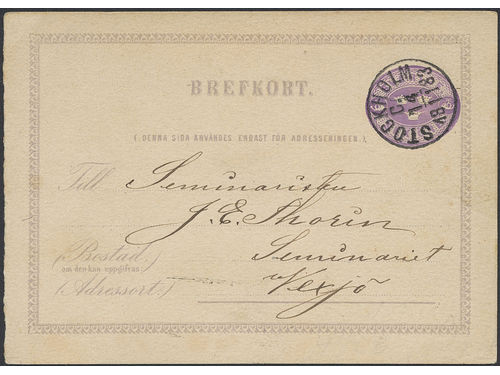 BREFKORT.
(DENNA SIDA ANVÄNDES ENDAST FÖR ADRESSERINGEN.)
Till Seminaristen
J. E. Thorin
Seminariet
(Bostad,
om den kan uppgifvas)
Vexjö
(Adressort.)
STOCKHOLM